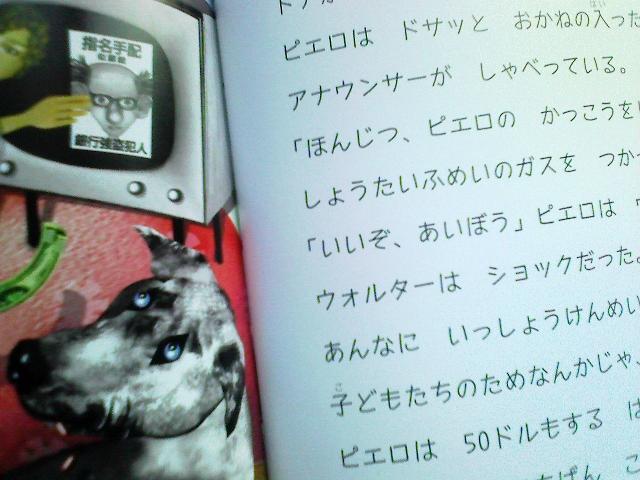 指名手配
銀行強盗犯人
ピエロは ドサッと おかねの入った
アナウンサーが しゃべっている。
「ほんじつ、ピエロの かっこうを
しょうたいふめいのガスを つかっ
「いいぞ、あいぼう」ピエロは
ウォルターは ショックだった。
あんなに いっしょうけんめい
子どもたちのためなんかじゃ、
ピエロは 50ドルもする は